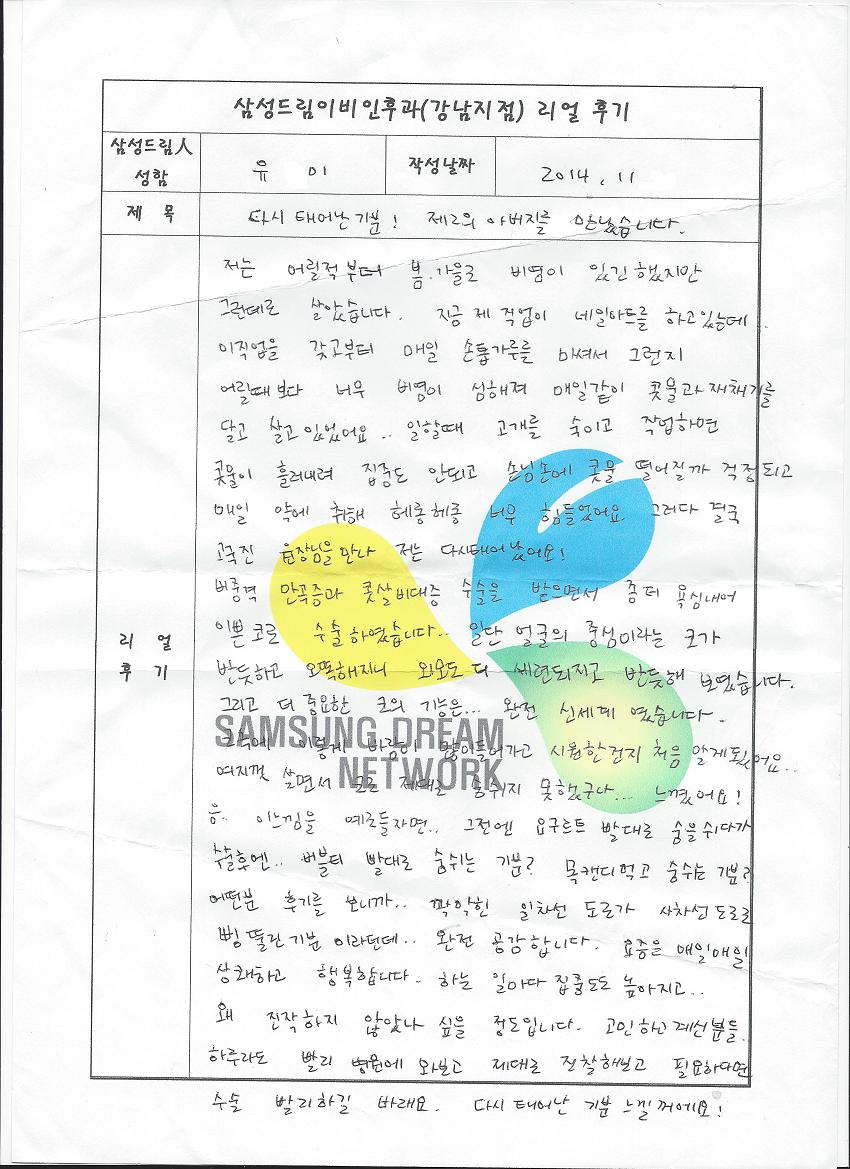 삼성드림이비인후과(강남지점) 리얼 후기
삼성드림人 성함
유 미
작성날짜
2014. 11
제 목
다시 태어난 기분! 제2의 아버지를 만났습니다.
리 얼 후 기
저는 어릴적부터 봄.가을로 비염이 있긴 했지만
그런데로 살았습니다. 지금 제 직업이 네일아트를 하고있는데..
이직업을 갖고부터 매일 손톱가루를 마셔서 그런지
어릴때보다 너무 비염이 심해져 매일같이 콧물과 재채기를
달고 살고있었어요.. 일할때 고개를 숙이고 작업하면
콧물이 흘러내려 집중도 안되고 손님손에 콧물 떨어질까 걱정되고
매일 약에 취해 헤롱헤롱 너무 힘들었어요 그러다 결국
고국진 원장님을 만나 저는 다시태어났어요!
비중격 만곡증과 콧살비대증 수술을 받으면서 좀더 욕심내어
이쁜코로 수술하였습니다.. 일단 얼굴의 중심이라는 코가
반듯하고 오똑해지니 외모도 더 세련되지고 반듯해 보였습니다.
그리고 더 중요한 코의 기능은... 완전 신세계 였습니다.
SAMSUNG DREAM NETWORK
이렇게 바람이 많이들어가고 시원한건지 처음 알게됬어요..
여지껏 살면서 코로 제대로 숨쉬지 못했구나... 느꼈어요!
음.. 이느낌을 예로들자면.. 그전엔 요구르트 빨대로 숨을쉬다가
수술후엔.. 버블티 빨대로 숨쉬는 기분? 목캔디먹고 숨쉬는 기분?
어떤분 후기를 보니까.. 꽉막힌 일차선 도로가 사차선도로로
뻥 뚫린기분 이라던데.. 완전 공감합니다. 요즘은 매일매일
상쾌하고 행복합니다. 하는 일마다 집중도도 높아지고..
왜 진작하지 않았나 싶을 정도입니다. 고민하고계신분들.
하루라도 빨리 병원에 와보고 제대로 진찰해보고 필요하다면
수술 빨리하길 바래요. 다시태어난 기분 느낄꺼에요!